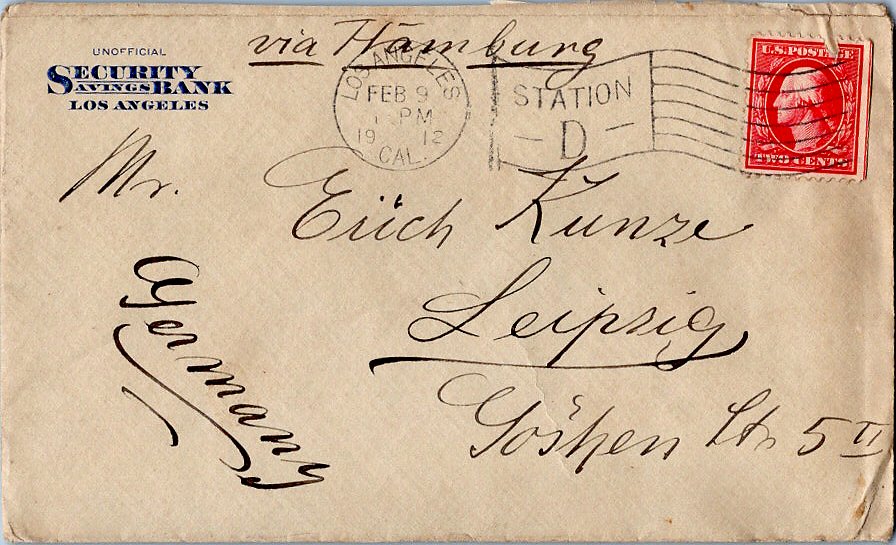 via Hamburg
UNOFFICIAL
SECURITY
SAVINGS BANK
LOS ANGELES
LOS ANGELES
FEB 9
PM
1912
CAL.
STATION
D
U.S. POSTAGE
TWO CENTS
Mr. Erich Kunze
Leipzig
Germany
Göshen Str 5 II